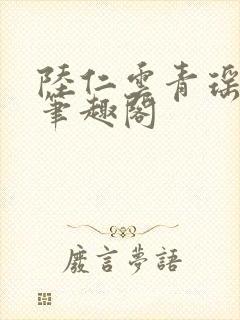 陸仁雲青瑶
筆趣閣
廢言夢語